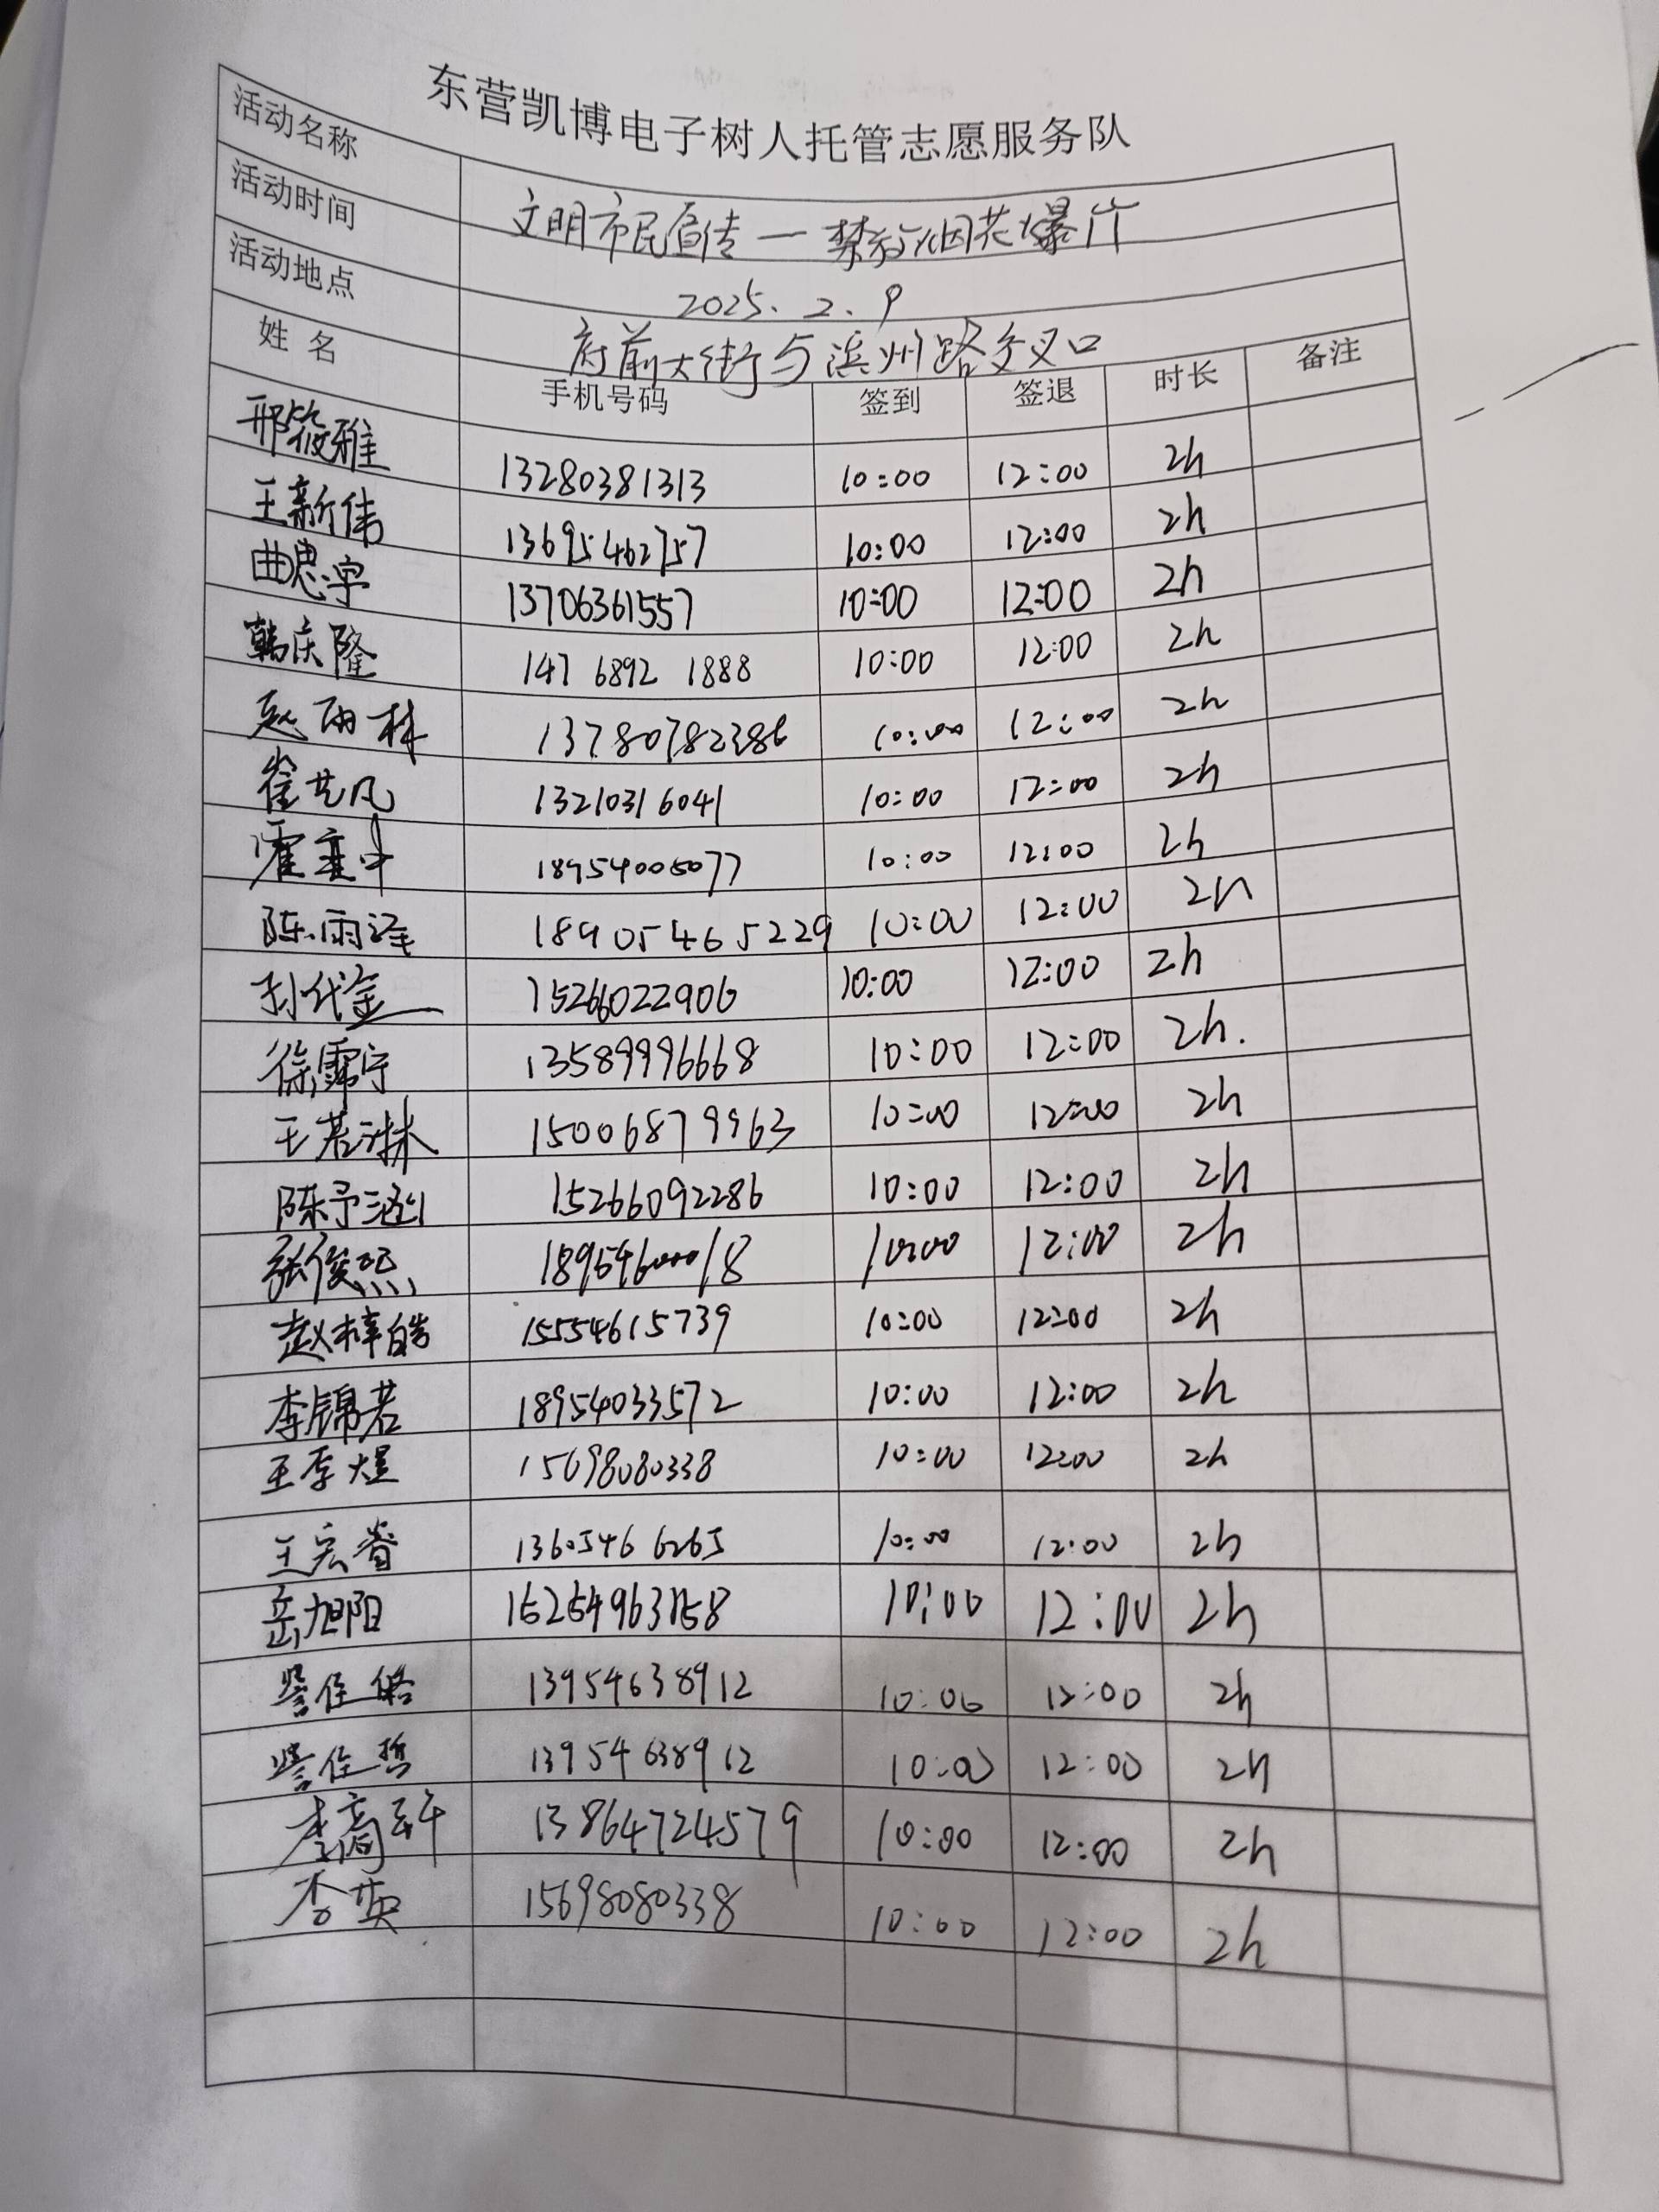 东营凯博电子树人托管志愿服务队
活动名称 文明市民宣传一禁放烟花爆竹
活动时间 2025.2.9
活动地点 府前大街与滨州路交叉口
姓名 手机号码 签到 签退 时长 备注
邢筱雅 13280381313 10:00 12:00 2h
王新伟 13695462757 10:00 12:00 2h
曲忠宇 13706361557 10:00 12:00 2h
韩庆隆 147 6892 1888 10:00 12:00 2h
赵雨林 13780782386 10:00 12:00 2h
崔艺凡 13210316041 10:00 12:00 2h
霍 18954005077 10:00 12:00 2h
陈雨泽 189054465229 10:00 12:00 2h
孙代金 15266022906 10:00 12:00 2h
徐霈宁 13589996668 10:00 12:00 2h.
王若琳 15006879963 10:00 12:00 2h
陈予涵 15266092286 10:00 12:00 2h
张俊熙 18954600018 10:00 12:00 2h
赵梓皓 15554615739 10:00 12:00 2h
李锦若 18954033572 10:00 12:00 2h
王李煜 15698080338 10:00 12:00 2h
王宏睿 13605466265 10:00 12:00 2h
岳旭阳 10:00 12:00 2h
佳皓 13954638912 10:00 12:00 2h
佳哲 13954638912 10:00 12:00 2h
李高轩 13864724579 10:00 12:00 2h
李英 15698080338 10:00 12:00 2h